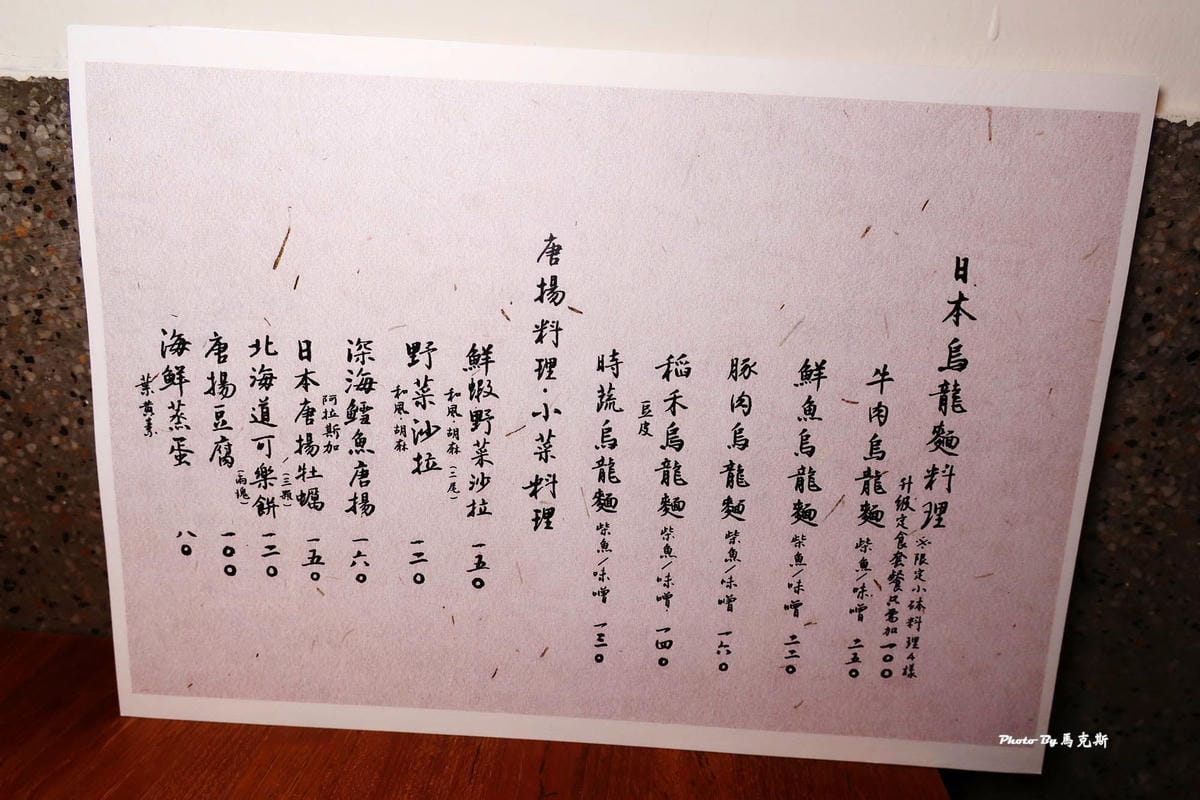 日本烏龍麵料理
※限定小缽料理4樣
升級定食套餐只需加一〇〇
牛肉烏龍麵 柴魚/味噌 二五〇
鮮魚烏龍麵 柴魚/味噌 二二〇
豚肉烏龍麵 柴魚/味噌 一六〇
稻禾烏龍麵 柴魚/味噌 一四〇
豆皮
時蔬烏龍麵 柴魚/味噌 一三〇
唐揚料理·小菜料理
鮮蝦野菜沙拉 一五〇
和風·胡麻(二尾)
野菜沙拉 一二〇
和風·胡麻
深海鱈魚唐揚 一六〇
阿拉斯加
日本唐揚牡蠣 一五〇
/(三顆)
北海道可樂餅 一二〇
(兩塊)
唐揚豆腐 一〇〇
海鮮蒸蛋 八〇
葉黃素
Photo By 馬克斯